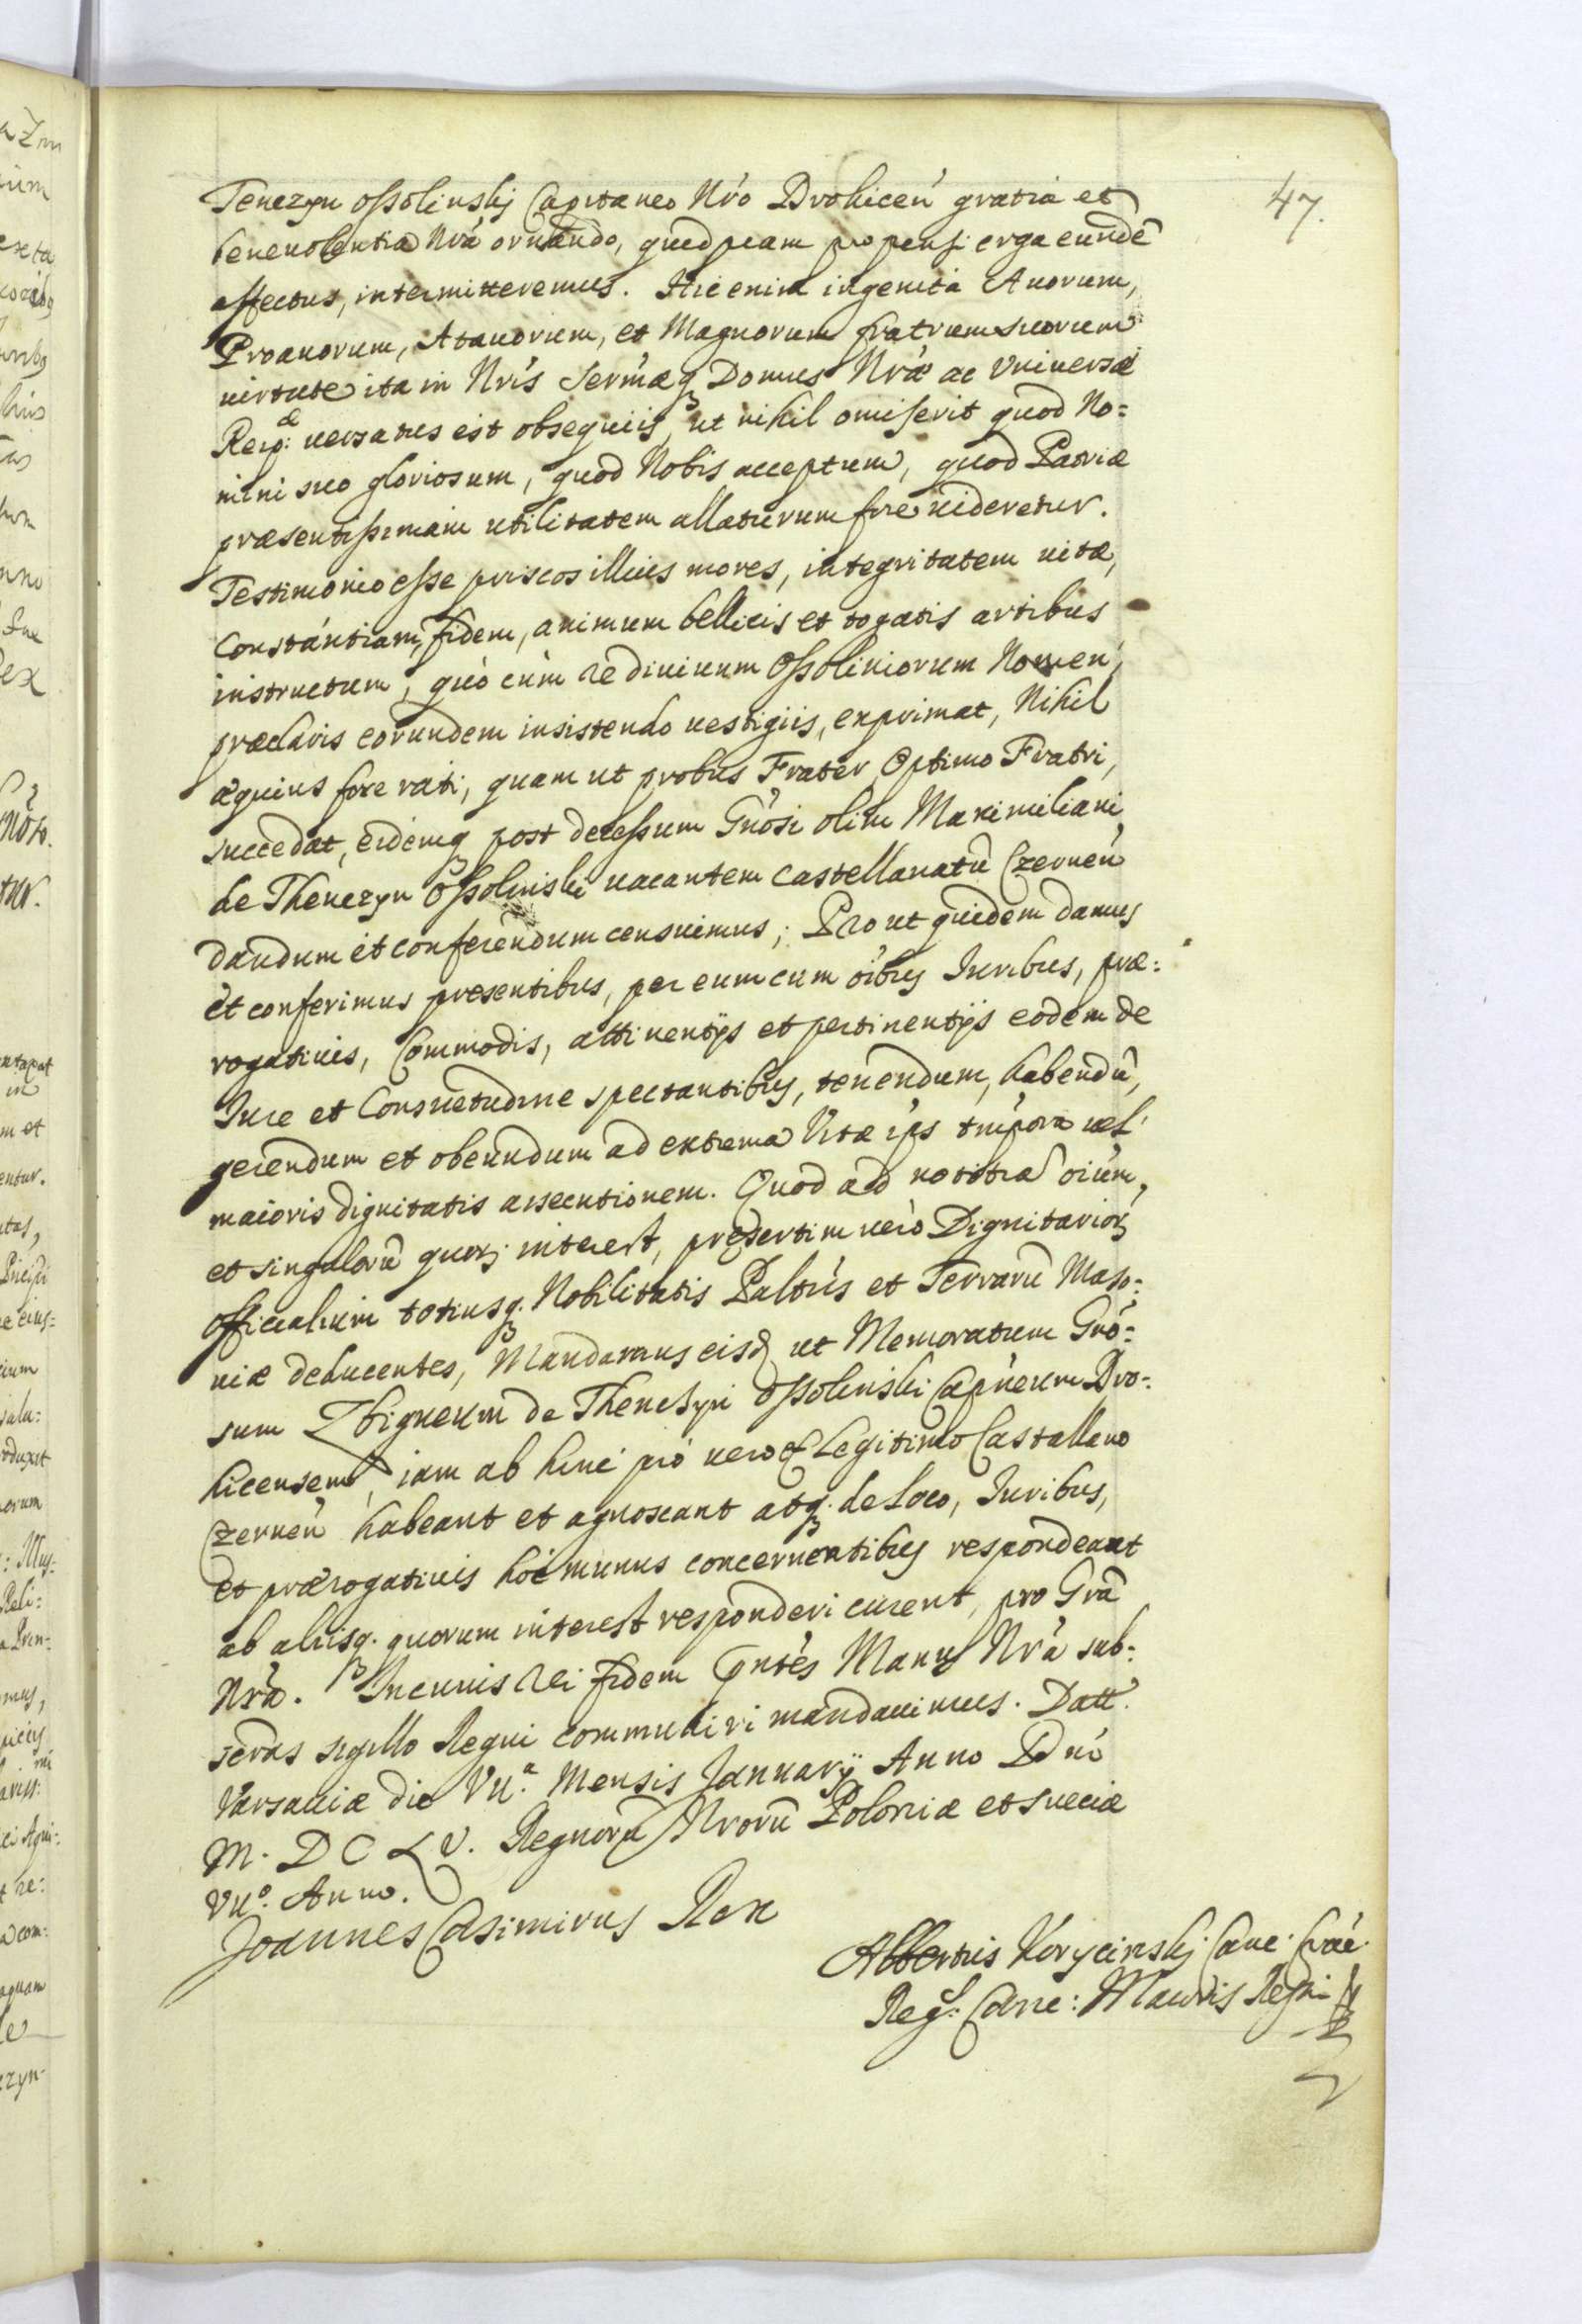 47.
Tenczyn Ossolinskij Capitaneo Nro Drohicen gratia et
beneuolentia Nra ornando, quidpiam propensi erga eunde
affectus, intermitteremus. Hic enim ingenita Auorum,
Proauorum, Atauorum, et Magnorum fratrum suorum
uirtute ita in Nris Sermæq Domus Nræ ac Vniuersæ
Reip: uersatus est obsequiis, ut nihil omiserit quod No=
mini suo gloriosum, quod Nobis acceptum, quod Patriæ
præsentissimam utilitatem allaturum fore uideretur.
Testimonio esse priscos illius mores, integritatem uitæ,
Constantiam, fidem, animum bellicis et togatis artibus
instructum, quò cùm rediuiuum Ossoliniorum Nomen,
præclaris eorundem insistendo uestigiis, exprimat, Nihil
æquius fore rati, quam ut probus Frater Optimo Fratri,
succedat, eidemq post decessum Gnosi olim Maximiliani
de Thenczyn Ossolinski uacantem Castellanatu Czernen
dandum et conferendum censuimus; Prout quidem damus
et conferimus presentibus, per eum cum oibus Iuribus, præ=
rogatiuis, Commodis, attinentÿs et pertinentÿs eodem de
Iure et Consuetudine spectantibus, tenendum, habendu,
gerendum et obeundum ad extrema Vitæ ips tmpora uel
maioris dignitatis assecutionem. Quod ad notitia oium,
et singuloru quorz interest, presertim uero Dignitarior
Officialium totiusq. Nobilitatis Paltus et Terraru Maso=
uiæ deducentes, Mandamus eisd ut Memoratum Gno=
sum Zbigneum de Thenczyn Ossolinski Capneum Dro=
hicensem, iam ab hinc pro uero et Legitimo Castellano
Czernen habeant et agnoscant atq. de Loco, Iuribus,
et prærogatiuis hoc munus concernentibus respondeant
ab aliisq. quorum interest responderi curent, pro Gra
Nra. In cuius rei fidem pntes Manu Nra sub=
scrbas sigillo Regni communiri mandauimus. Datt.
Varsauiæ die VII.a Mensis Januarÿ Anno Dni
M. D C L V. Regnoru Nroru Poloniæ et Sueciæ
VII.o Anno.
Joannes Casimirus Rex
Albertus Korycinskj Canc. Crac.
Regs: Canc: Maioris Regni